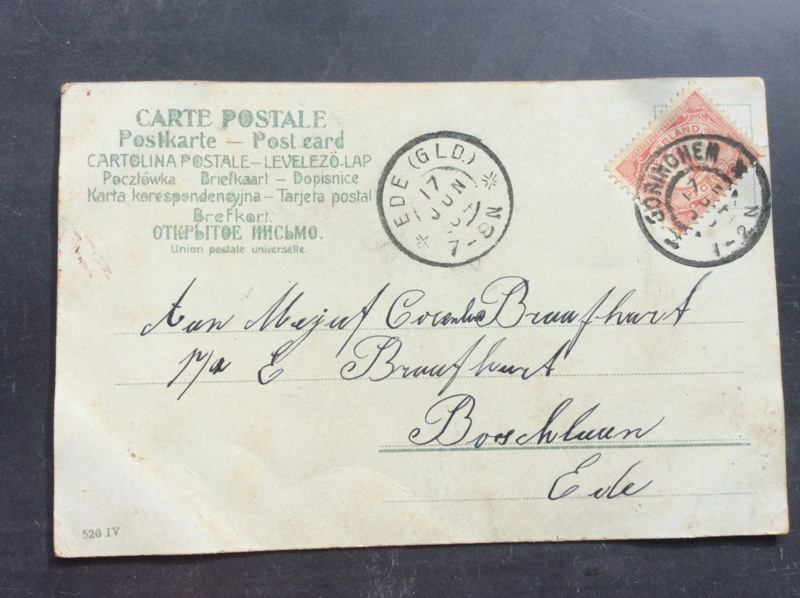 CARTE POSTALE
Postkarte — Post card
CARTOLINA POSTALE – LEVELEZÖ-LAP
Pocztówka – Briefkaart – Dopisnice
Karta korespondencyjna – Tarjeta postal
Brefkort.
ОТКРЫТОЕ ПИСЬМО.
Union postale universelle.
EDE (GLD.)
17
JUN
04
7-8N
LAND
17
JUN
04
1-2N
Aan Mejuf Braafhart
p/a E Braafhart
Boschlaan
Ede
520 IV